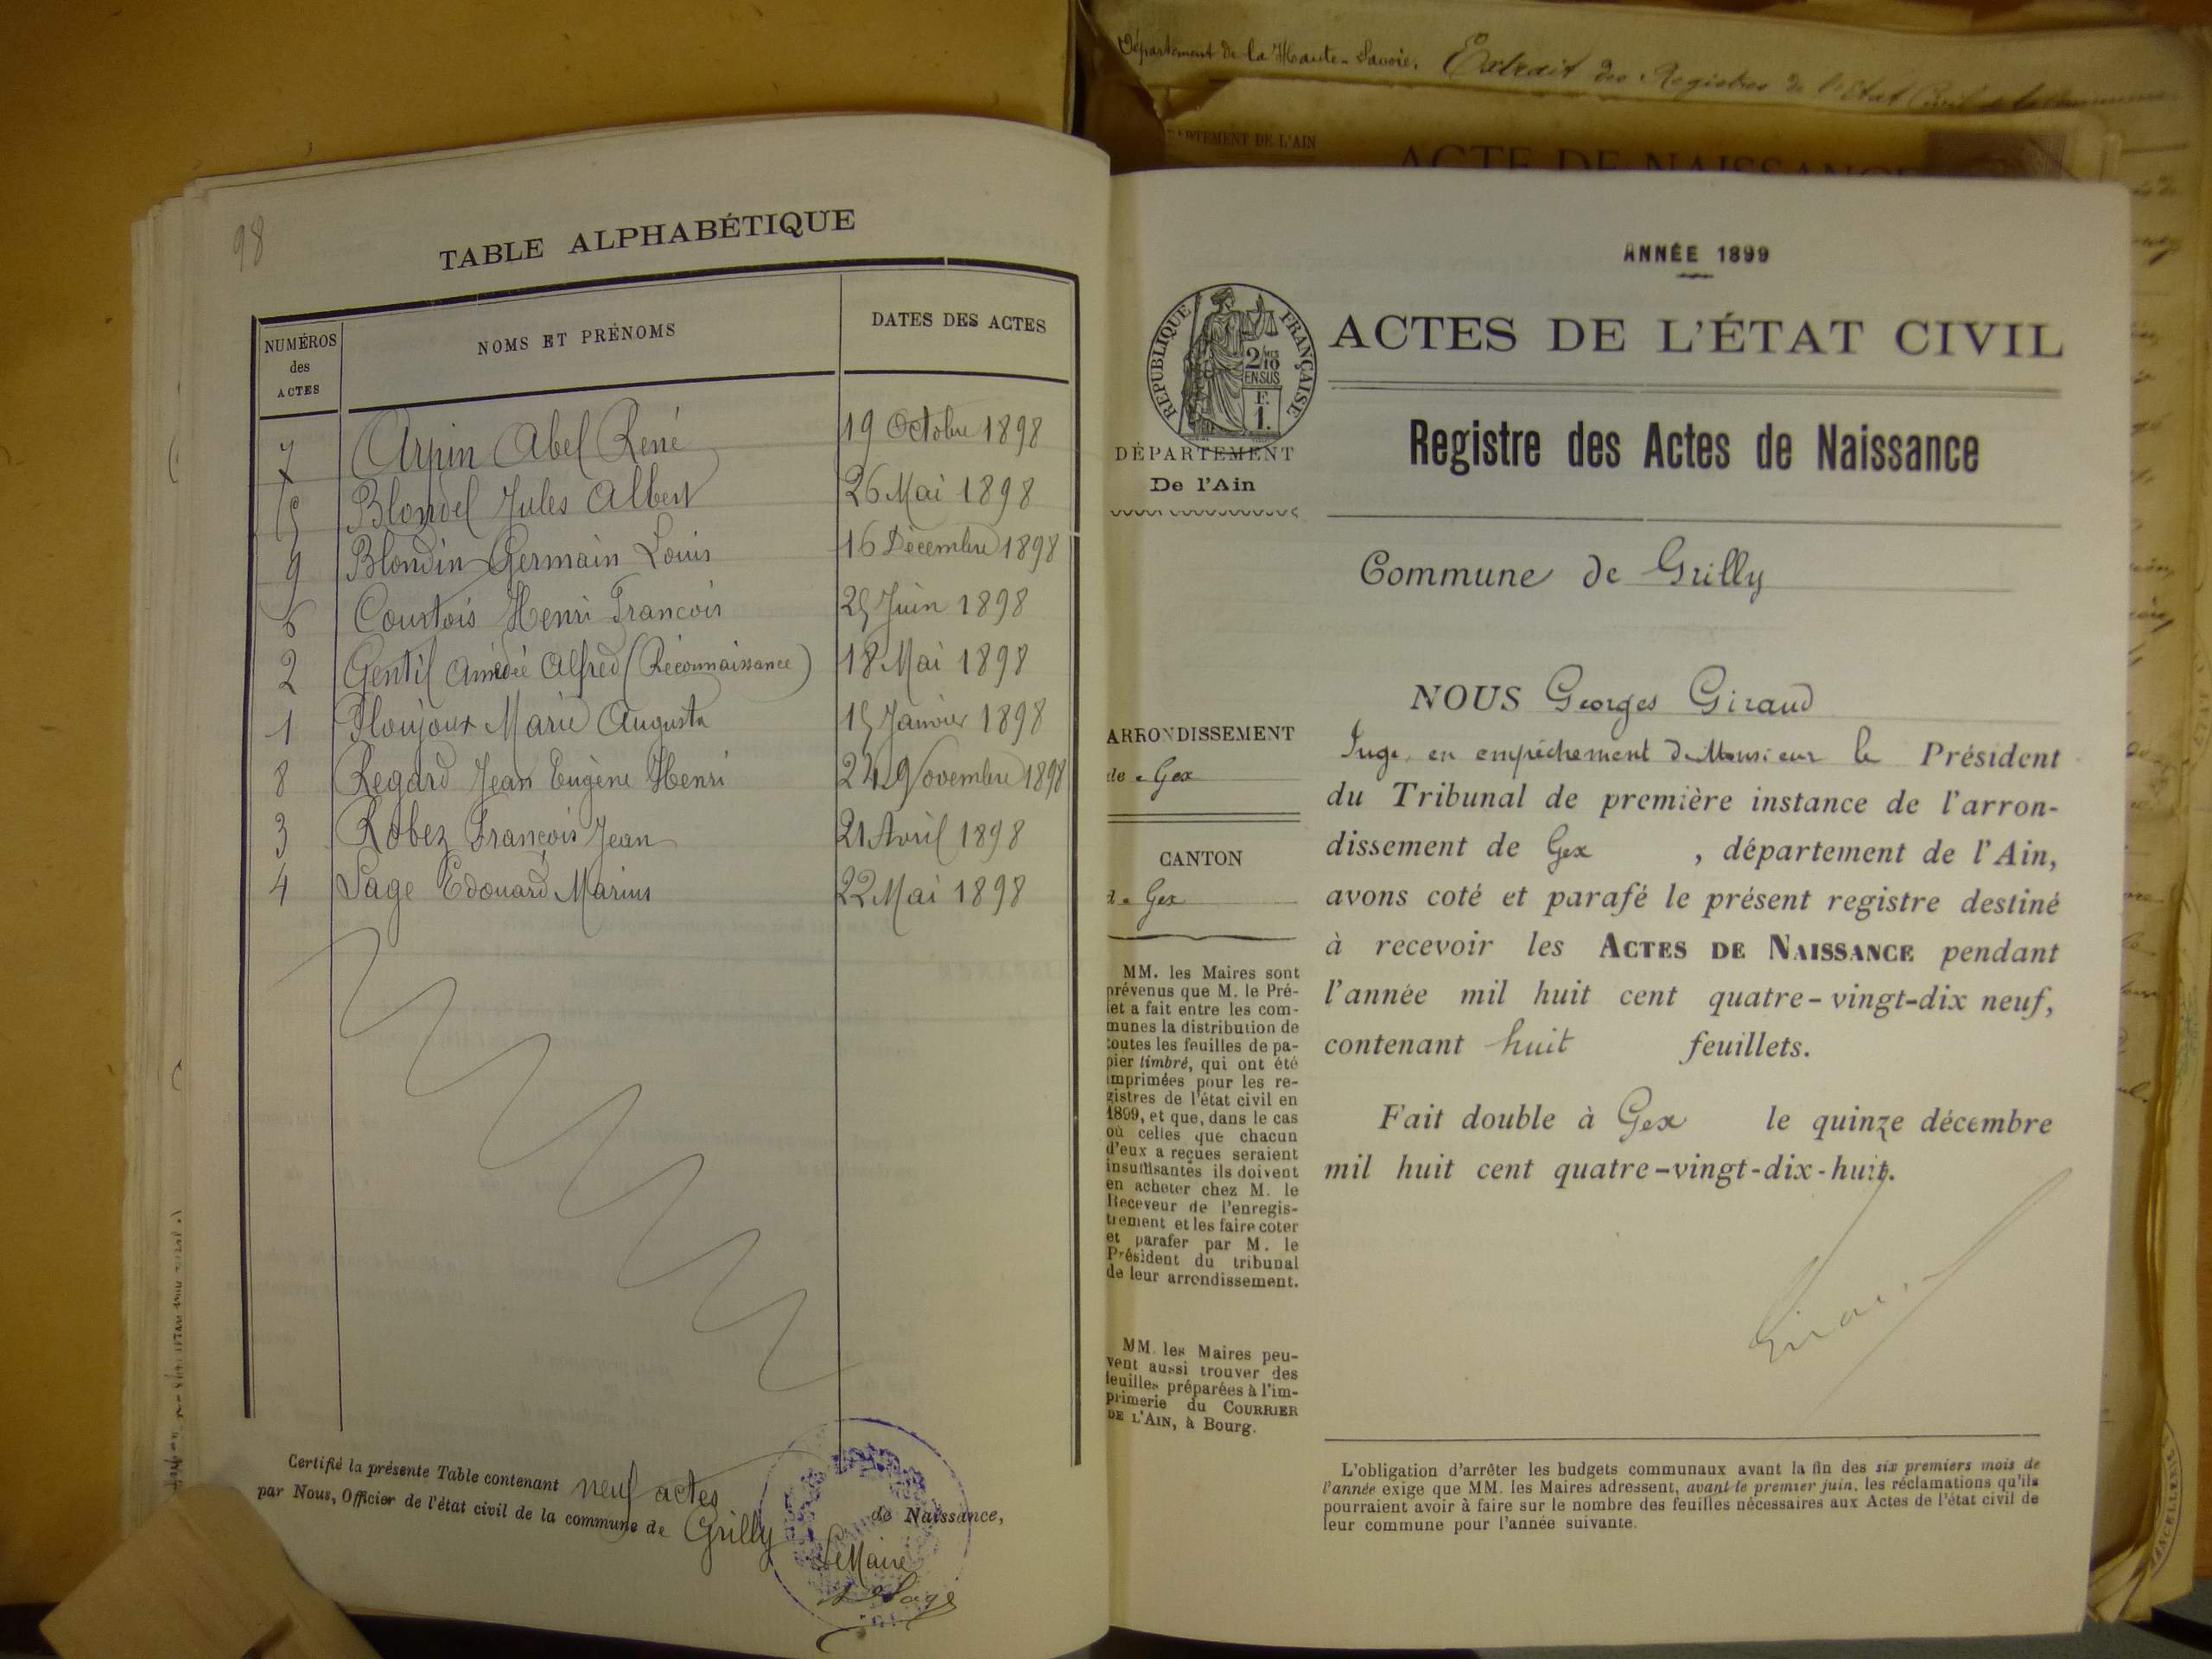 98
TABLE ALPHABÉTIQUE
NUMÉROS des ACTES
NOMS ET PRÉNOMS
DATES DES ACTES
7 Arpin Abel René 19 Octobre 1898
5 Blondel Jules Albert 26 Mai 1898
9 Blondin Germain Louis 16 Décembre 1898
6 Courtois Henri Francois 25 Juin 1898
2 Gentil Amédée Alfred (Reconnaissance) 18 Mai 1898
1 Ploujoux Marie Augusta 15 Janvier 1898
8 Regard Jean Eugène Henri 24 Novembre 1898
3 Robez François Jean 21 Avril 1898
4 Sage Edouard Marius 22 Mai 1898
Certifié la présente Table contenant neuf actes de Naissance,
par Nous, Officier de l'état civil de la commune de Grilly
Le Maire
Sage
Département de la Haute-Savoie. Extrait des Registres de l'Etat Civil de la commune
DÉPARTEMENT DE L'AIN
ACTE DE NAISSANCE
ANNÉE 1899
RÉPUBLIQUE FRANÇAISE
2/10mes
EN SUS
F.
1.
ACTES DE L'ÉTAT CIVIL
DÉPARTEMENT
De l'Ain
Registre des Actes de Naissance
Commune de Grilly
ARRONDISSEMENT
de Gex
CANTON
de Gex
MM. les Maires sont
prévenus que M. le Pré-
fet a fait entre les com-
munes la distribution de
toutes les feuilles de pa-
pier timbré, qui ont été
imprimées pour les re-
gistres de l'état civil en
1899, et que, dans le cas
où celles que chacun
d'eux a reçues seraient
insuffisantes ils doivent
en acheter chez M. le
Receveur de l'enregis-
trement et les faire coter
et parafer par M. le
Président du tribunal
de leur arrondissement.
MM. les Maires peu-
vent aussi trouver des
feuilles préparées à l'im-
primerie du COURRIER
DE L'AIN, à Bourg.
NOUS Georges Giraud
Juge, en empêchement de Monsieur le Président
du Tribunal de première instance de l'arron-
dissement de Gex , département de l'Ain,
avons coté et parafé le présent registre destiné
à recevoir les ACTES DE NAISSANCE pendant
l'année mil huit cent quatre-vingt-dix neuf,
contenant huit feuillets.
Fait double à Gex le quinze décembre
mil huit cent quatre-vingt-dix-huit.
L'obligation d'arrêter les budgets communaux avant la fin des six premiers mois de
l'année exige que MM. les Maires adressent, avant le premier juin, les réclamations qu'ils
pourraient avoir à faire sur le nombre des feuilles nécessaires aux Actes de l'état civil de
leur commune pour l'année suivante.